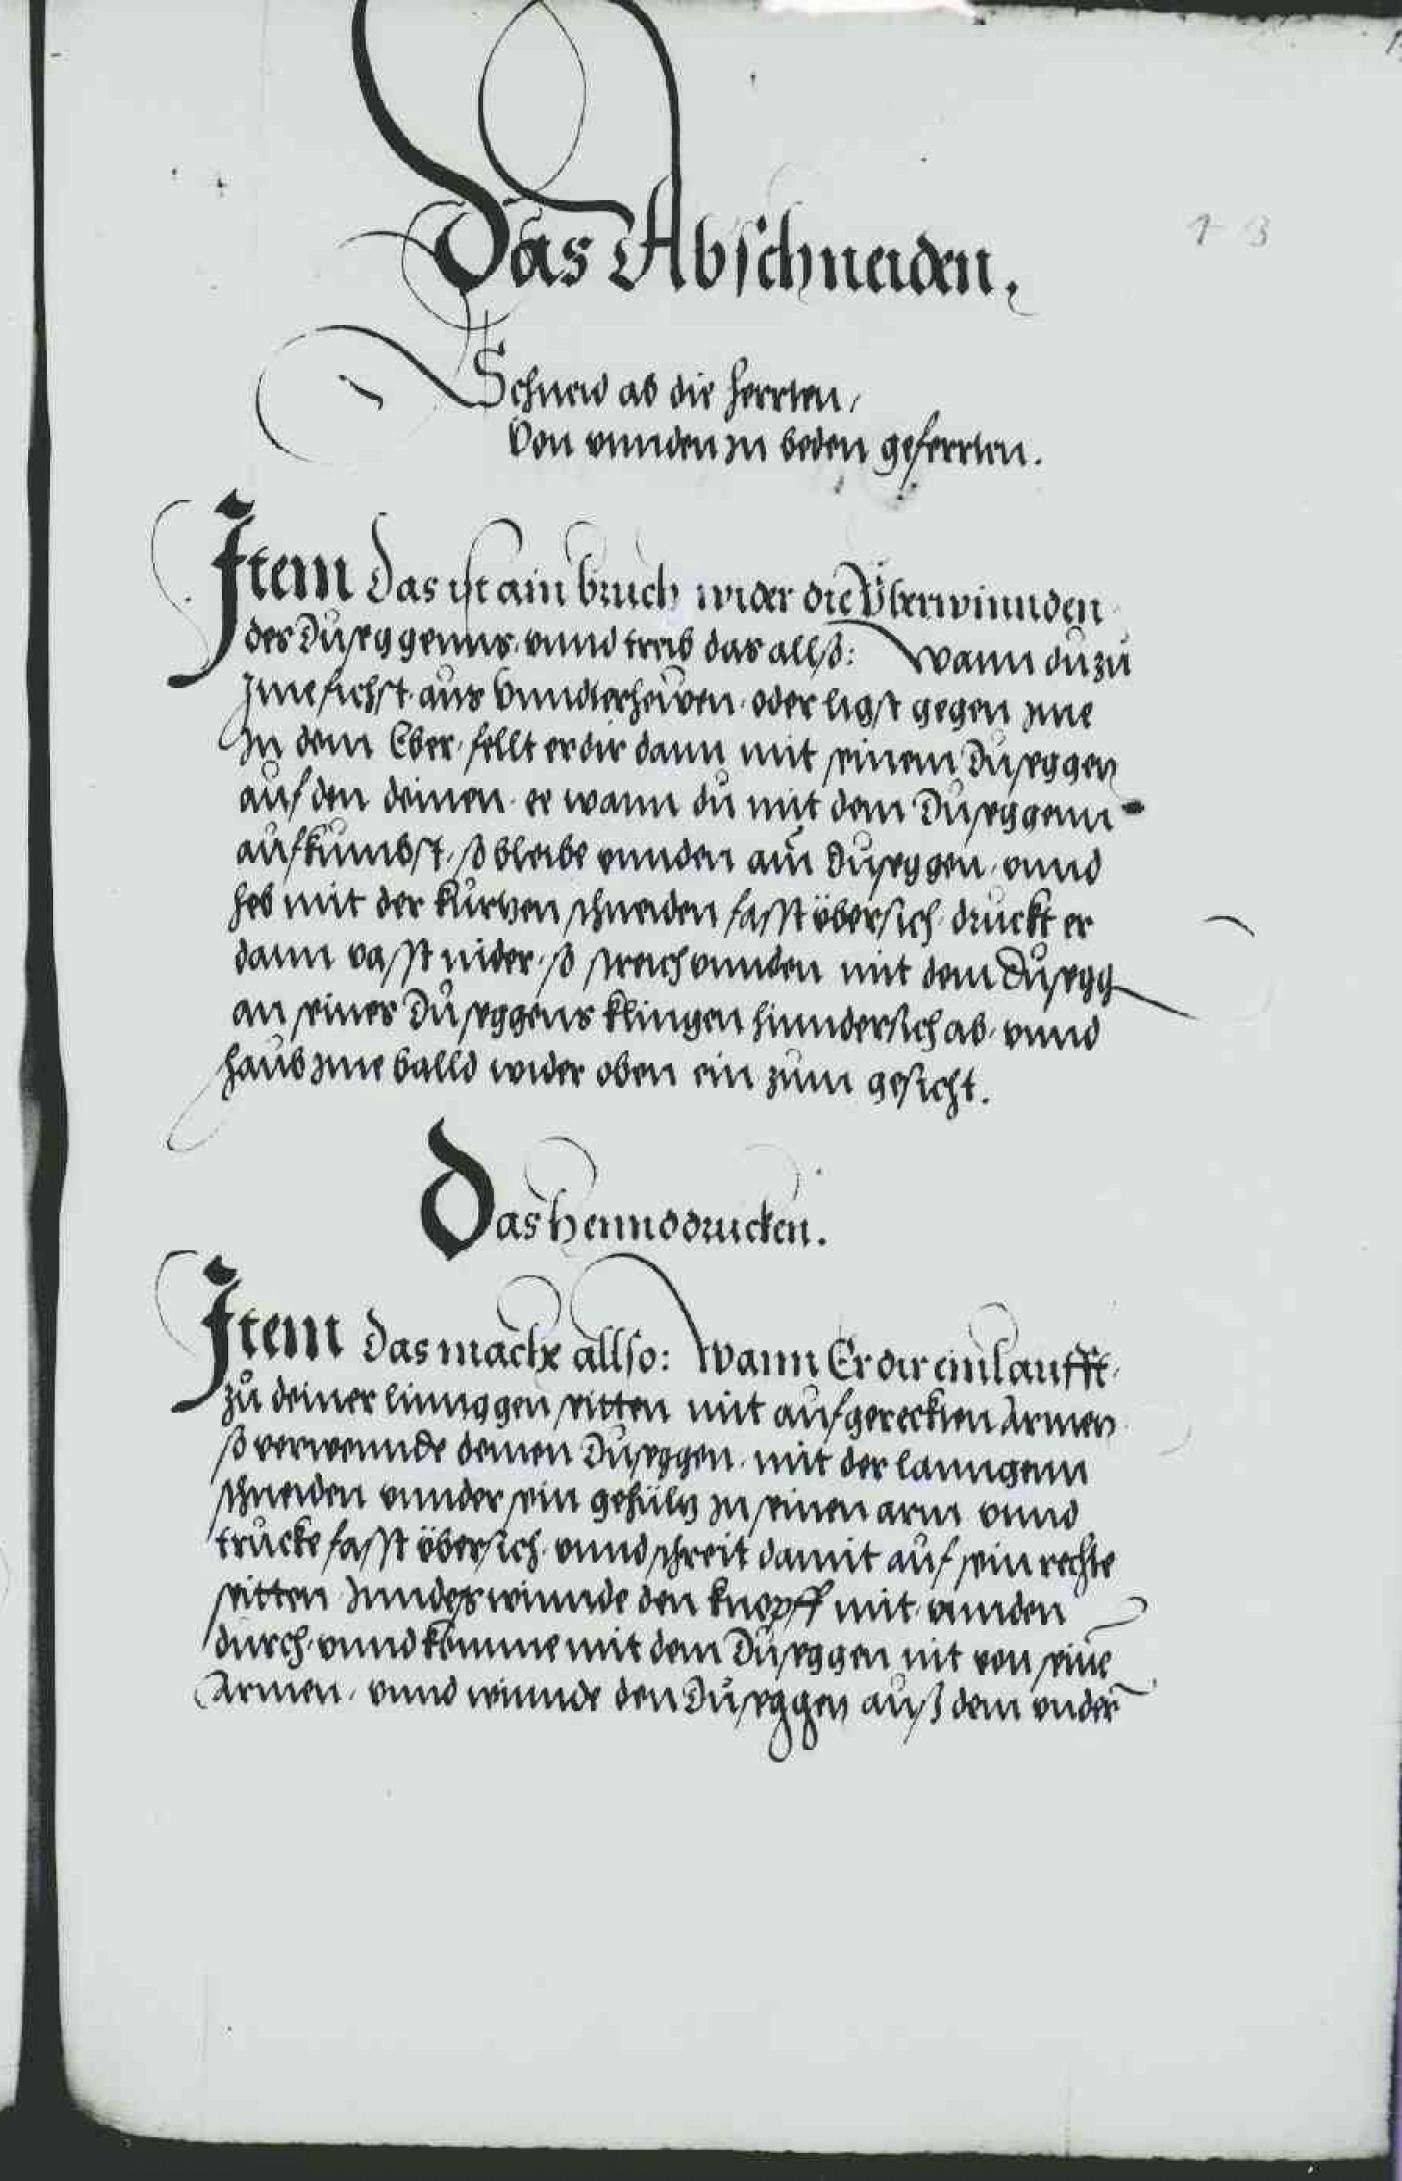 13
Das Abschneiden.
Schneid ab die herrten,
Von vnnden zu beden geferrten.
Item das ist ain bruch wider die Überwinnden
des Dusegganns, vnnd treib das allß: Wann du zu
Jme fichst aus vnnderhewen, oder ligst gegen jme
Jn dem Eber, fellt er dir dann mit seinem Duseggen
auf den deinen, ee wann du mit dem Duseggenn
aufkumbst, so bleibe vnnden am Duseggen, vnnd
heb mit der kurtzen schneiden fasst übersich, druckt er
dann vasst nider, so streich vnnden mit dem Dusegg
an seines Duseggens klingen hinndersich ab, vnnd
haub jme balld wider oben ein zum gesicht.
Das henndtrucken.
Item das mach allso: Wann Er dir einlaufft,
zu deiner linnggen seitten mit aufgereckten Armen
so verwennde deinen Duseggen, mit der lanngenn
schneiden vnnder sein gehültz zu seinen arm vnnd
trucke fasst übersich, vnnd schreit damit auf sein rechte
seitten Jnndes winnde den knopff mit vnnden
durch, vnnd komme mit dem Duseggen nit von seinē
Armen, vnnd winnde den Duseggen auß dem vnder